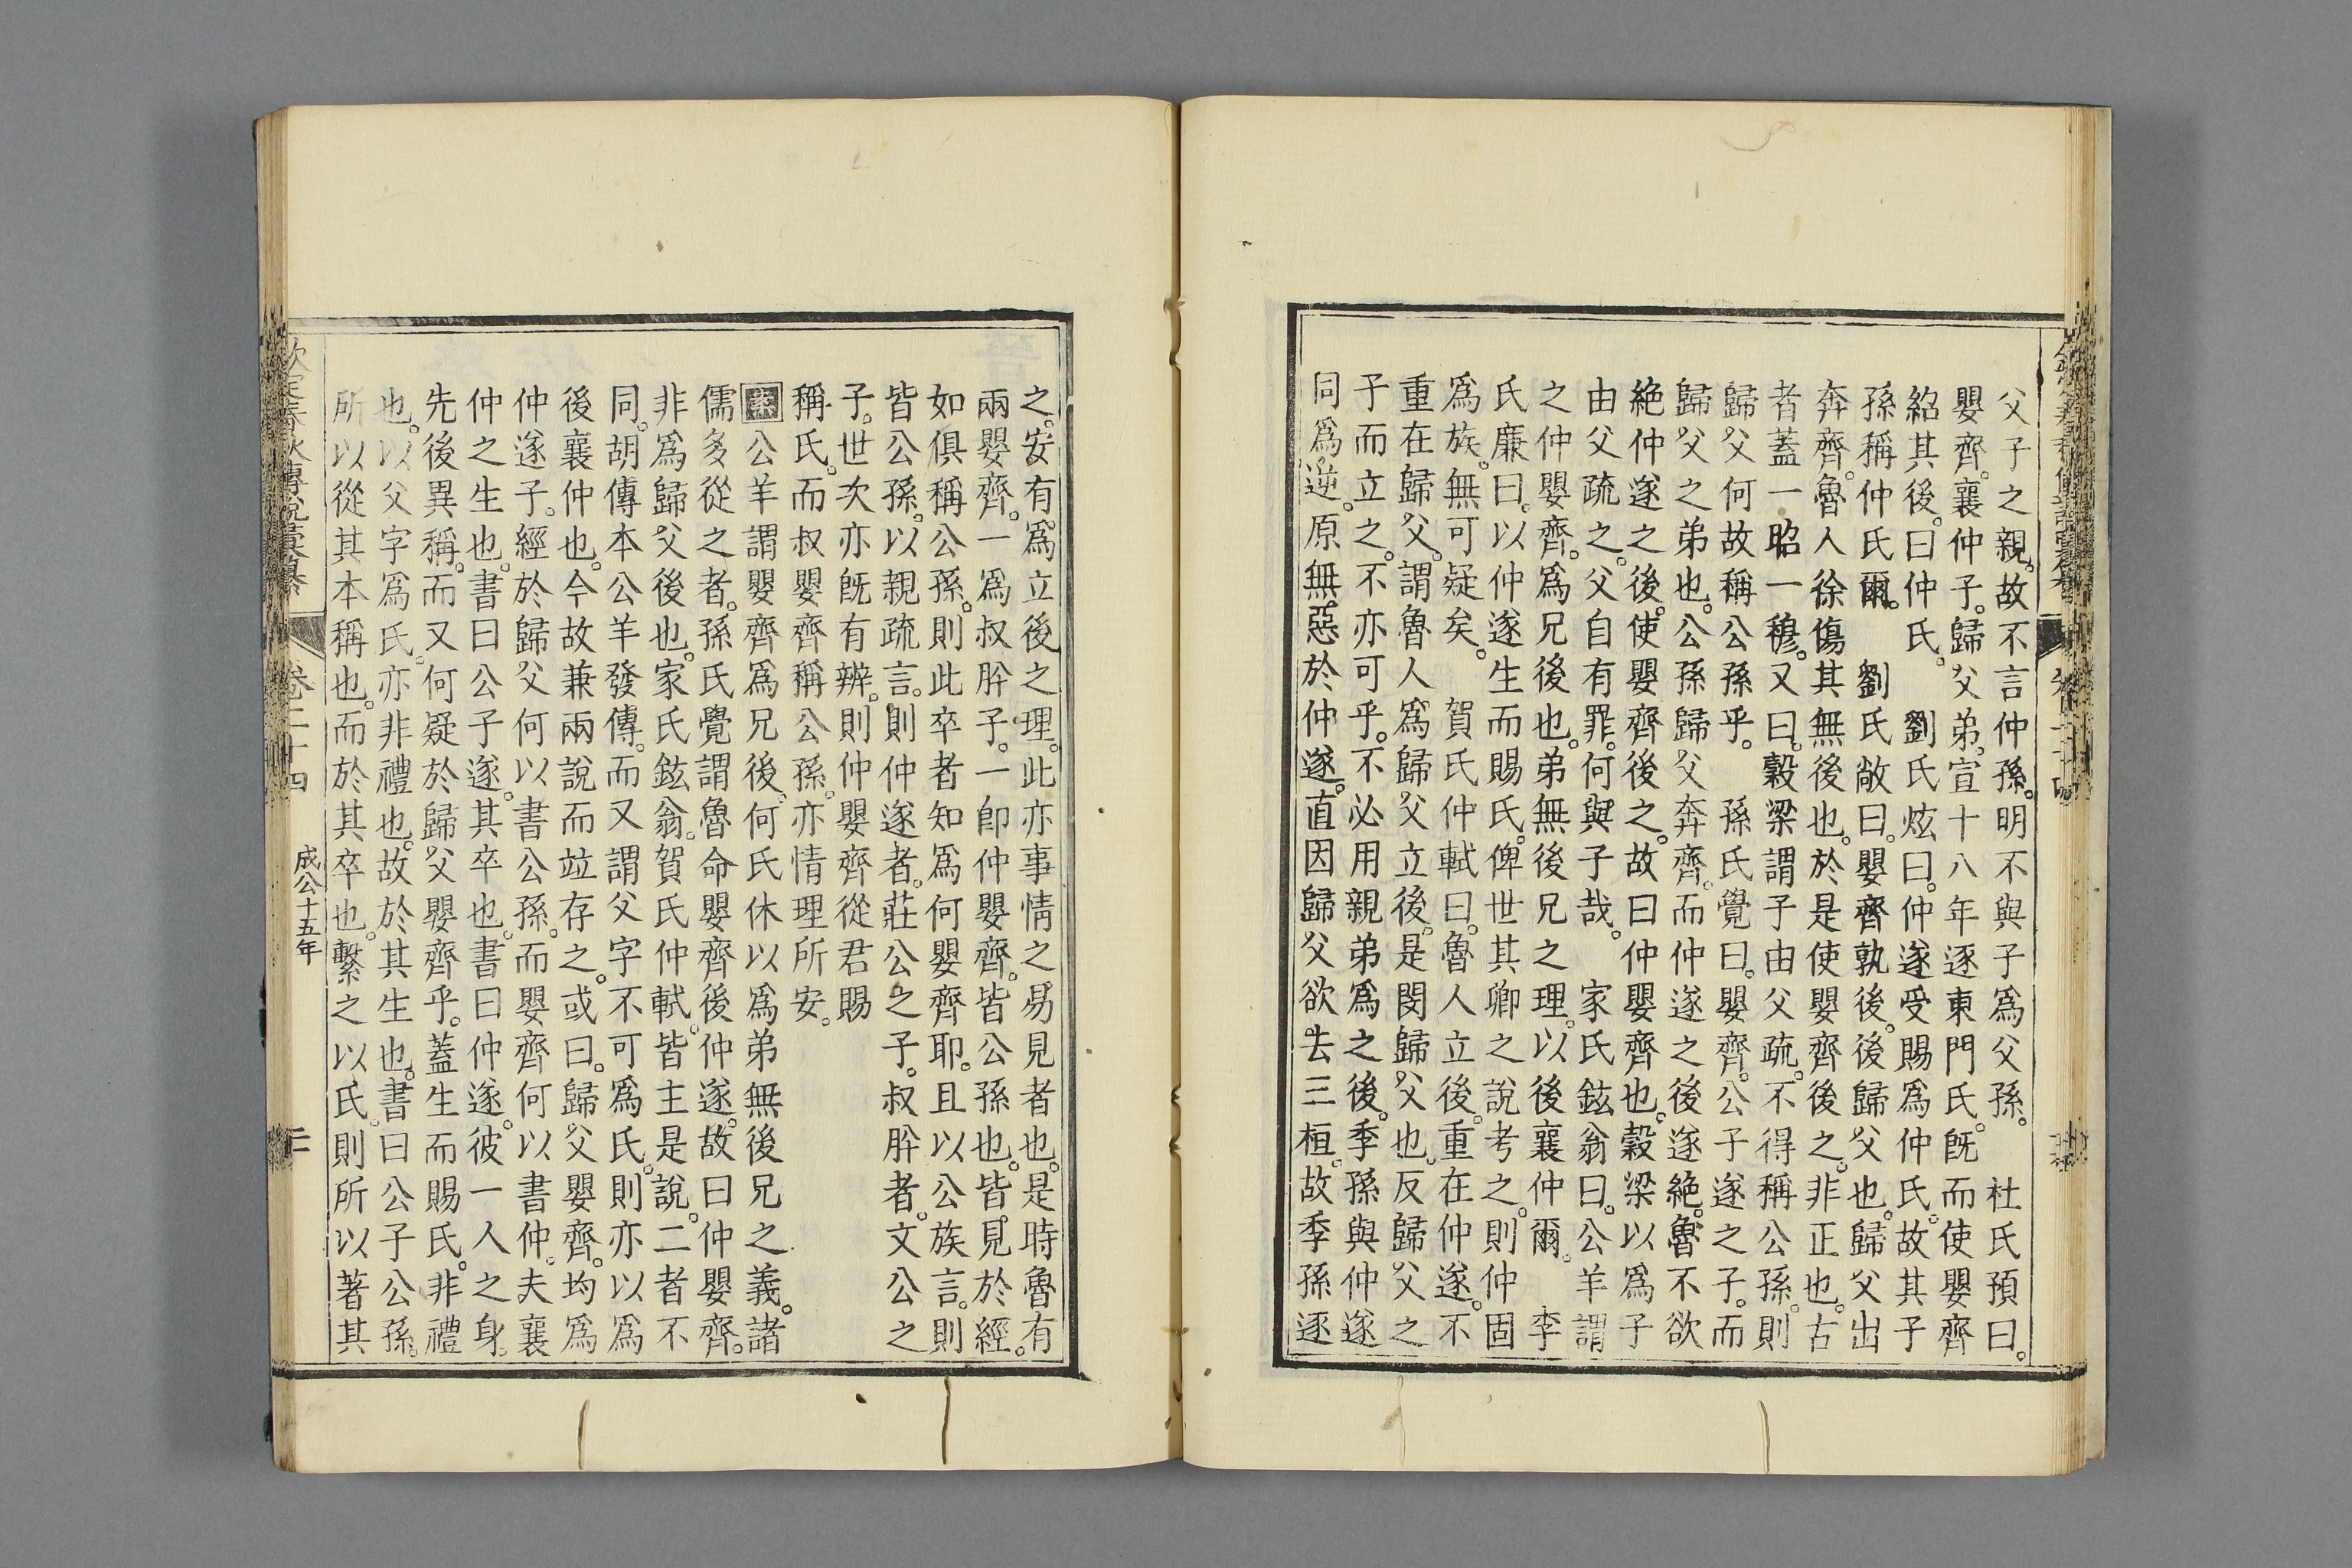 父子之親。故不言仲孫。明不與子爲父孫。 杜氏預曰。
嬰齊。襄仲子。歸父弟。宣十八年逐東門氏。旣而使嬰齊
紹其後。曰仲氏。 劉氏炫曰。仲遂受賜爲仲氏。故其子
孫稱仲氏爾。 劉氏敞曰。嬰齊孰後。後歸父也。歸父出
奔齊。魯人徐傷其無後也。於是使嬰齊後之。非正也。古
者蓋一昭一穆。又曰。穀梁謂子由父疏。不得稱公孫。則
歸父何故稱公孫乎。 孫氏覺曰。嬰齊。公子遂之子。而
歸父之弟也。公孫歸父奔齊。而仲遂之後遂絶。魯不欲
絶仲遂之後。使嬰齊後之。故曰仲嬰齊也。穀梁以爲子
由父疏之。父自有罪。何與子哉。 家氏鉉翁曰。公羊謂
之仲嬰齊。爲兄後也。弟無後兄之理。以後襄仲爾。 李
氏廉曰。以仲遂生而賜氏。俾世其卿之說考之。則仲固
爲族。無可疑矣。 賀氏仲軾曰。魯人立後。重在仲遂。不
重在歸父。謂魯人爲歸父立後。是閔歸父也。反歸父之
子而立之。不亦可乎。不必用親弟爲之後。季孫與仲遂
同爲逆。原無惡於仲遂。直因歸父欲去三桓。故季孫逐
之。安有爲立後之理。此亦事情之易見者也。是時魯有
兩嬰齊。一爲叔肸子。一卽仲嬰齊。皆公孫也。皆見於經。
如俱稱公孫。則此卒者知爲何嬰齊耶。且以公族言。則
皆公孫。以親疏言。則仲遂者。莊公之子。叔肸者。文公之
子。世次亦旣有辨。則仲嬰齊從君賜
稱氏。而叔嬰齊稱公孫。亦情理所安。
案公羊謂嬰齊爲兄後。何氏休以爲弟無後兄之義。諸
儒多從之者。孫氏覺謂魯命嬰齊後仲遂。故曰仲嬰齊。
非爲歸父後也。家氏鉉翁。賀氏仲軾。皆主是說。二者不
同。胡傳本公羊發傳。而又謂父字不可爲氏。則亦以爲
後襄仲也。今故兼兩說而竝存之。或曰。歸父嬰齊。均爲
仲遂子。經於歸父何以書公孫。而嬰齊何以書仲。夫襄
仲之生也。書曰公子遂。其卒也。書曰仲遂。彼一人之身。
先後異稱。而又何疑於歸父嬰齊乎。蓋生而賜氏。非禮
也。以父字爲氏。亦非禮也。故於其生也。書曰公子公孫。
所以從其本稱也。而於其卒也。繫之以氏。則所以著其
欽定春秋傳說彙纂 卷二十四 成公十五年